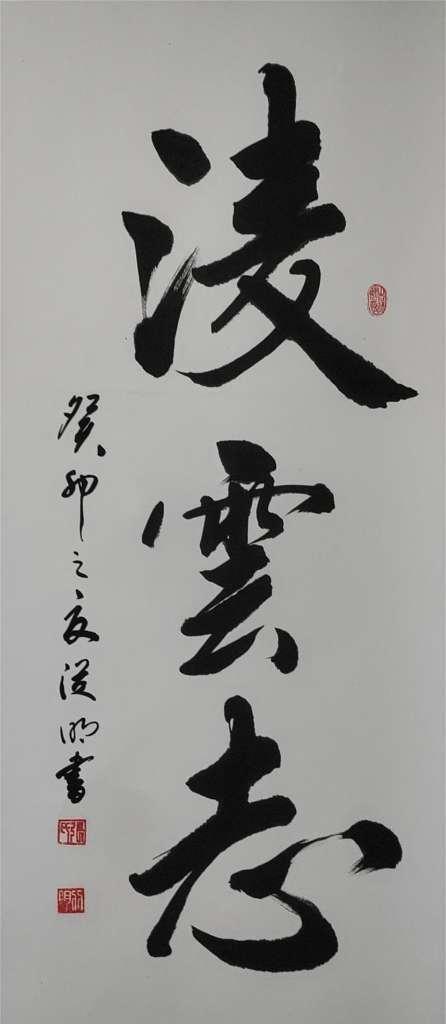 凌雲志
癸卯之夏從明書